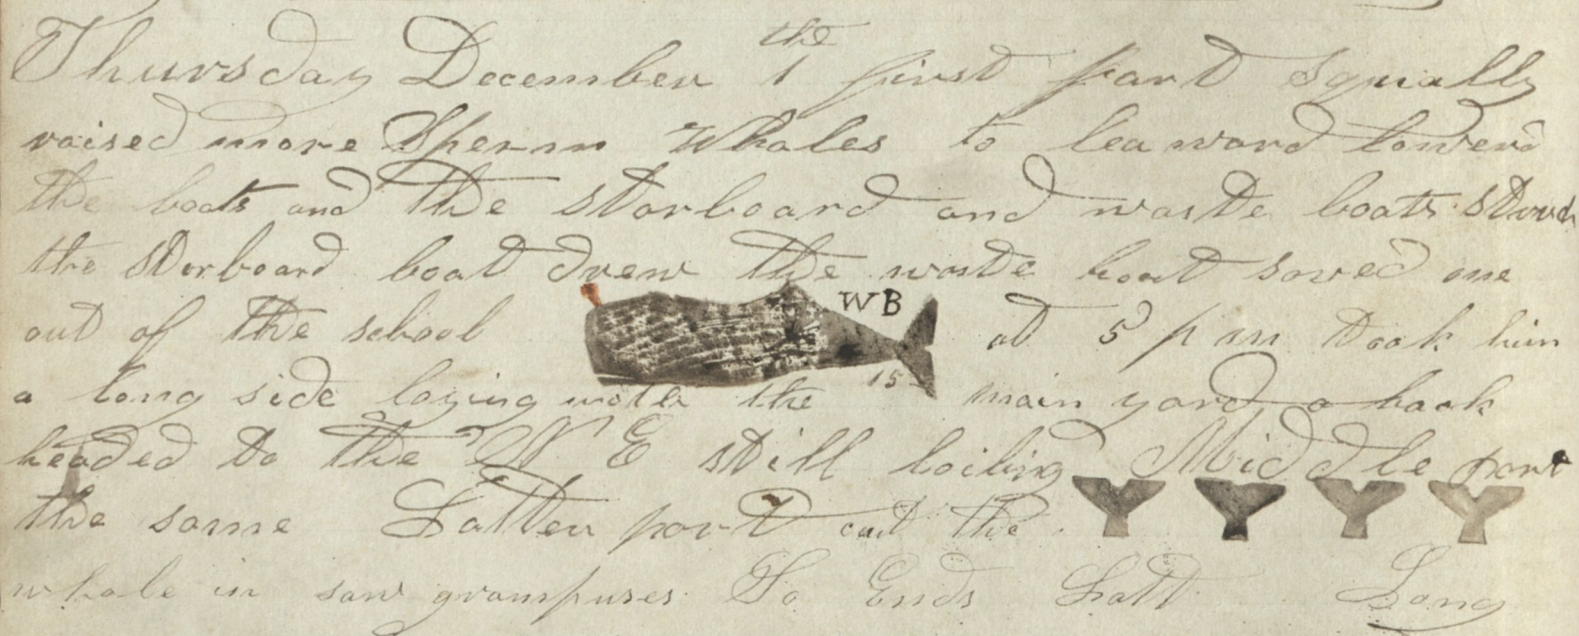 Thursday December the 1 first part Squally
raised more Sperm Whales to leaward lowerd
the boats and the starboard and waste boats struck
the storboard boat drew the waste boat saved one
out of the school WB 15 at 5 pm took him
a long side laying with the main yard a back
headed to the N E still boiling Middle part
the same Latter part cut the
whale in saw grampuses So Ends Latt Long